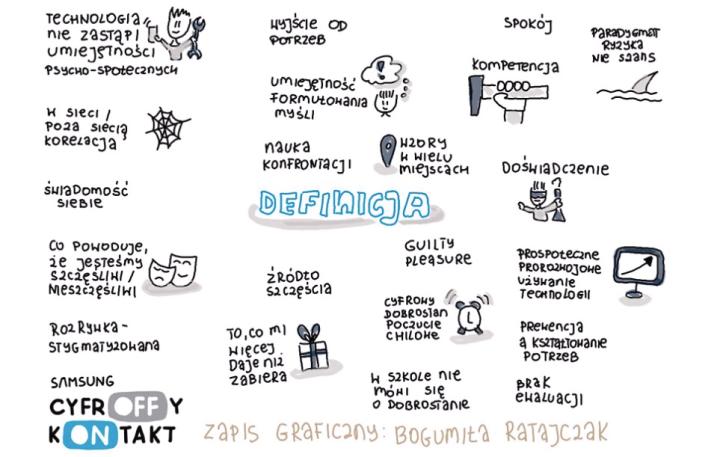 TECHNOLOGIA
NIE ZASTĄPI
UMIEJĘTNOŚCI
PSYCHO-SPOŁECZNYCH
WYJŚCIE OD
POTRZEB
SPOKÓJ
PARADYGMAT
RYZYKA
NIE SZANS
UMIEJĘTNOŚĆ
FORMUŁOWANIA
MYŚLI
KOMPETENCJA
W SIECI /
POZA SIECIĄ
KORELACJA
NAUKA
KONFRONTACJI
WZORY
W WIELU
MIEJSCACH
DOŚWIADCZENIE
ŚWIADOMOŚĆ
SIEBIE
DEFINICJA
CO POWODUJE,
ŻE JESTEŚMY
SZCZĘŚLIWI /
NIESZCZĘŚLIWI
ŹRÓDŁO
SZCZĘŚCIA
GUILTY
PLEASURE
PROSPOŁECZNE
PROROZWOJOWE
UŻYWANIE
TECHNOLOGII
ROZRYWKA -
STYGMATYZOWANA
TO, CO MI
WIĘCEJ
DAJE NIŻ
ZABIERA
CYFROWY
DOBROSTAN
POCZUCIE
CHWILOWE
PREWENCJA
A KSZTAŁTOWANIE
POTRZEB
W SZKOLE NIE
MÓWI SIĘ
O DOBROSTANIE
BRAK
EWALUACJI
SAMSUNG
CYFROFFY
KONTAKT
ZAPIS GRAFICZNY: BOGUMIŁA RATAJCZAK